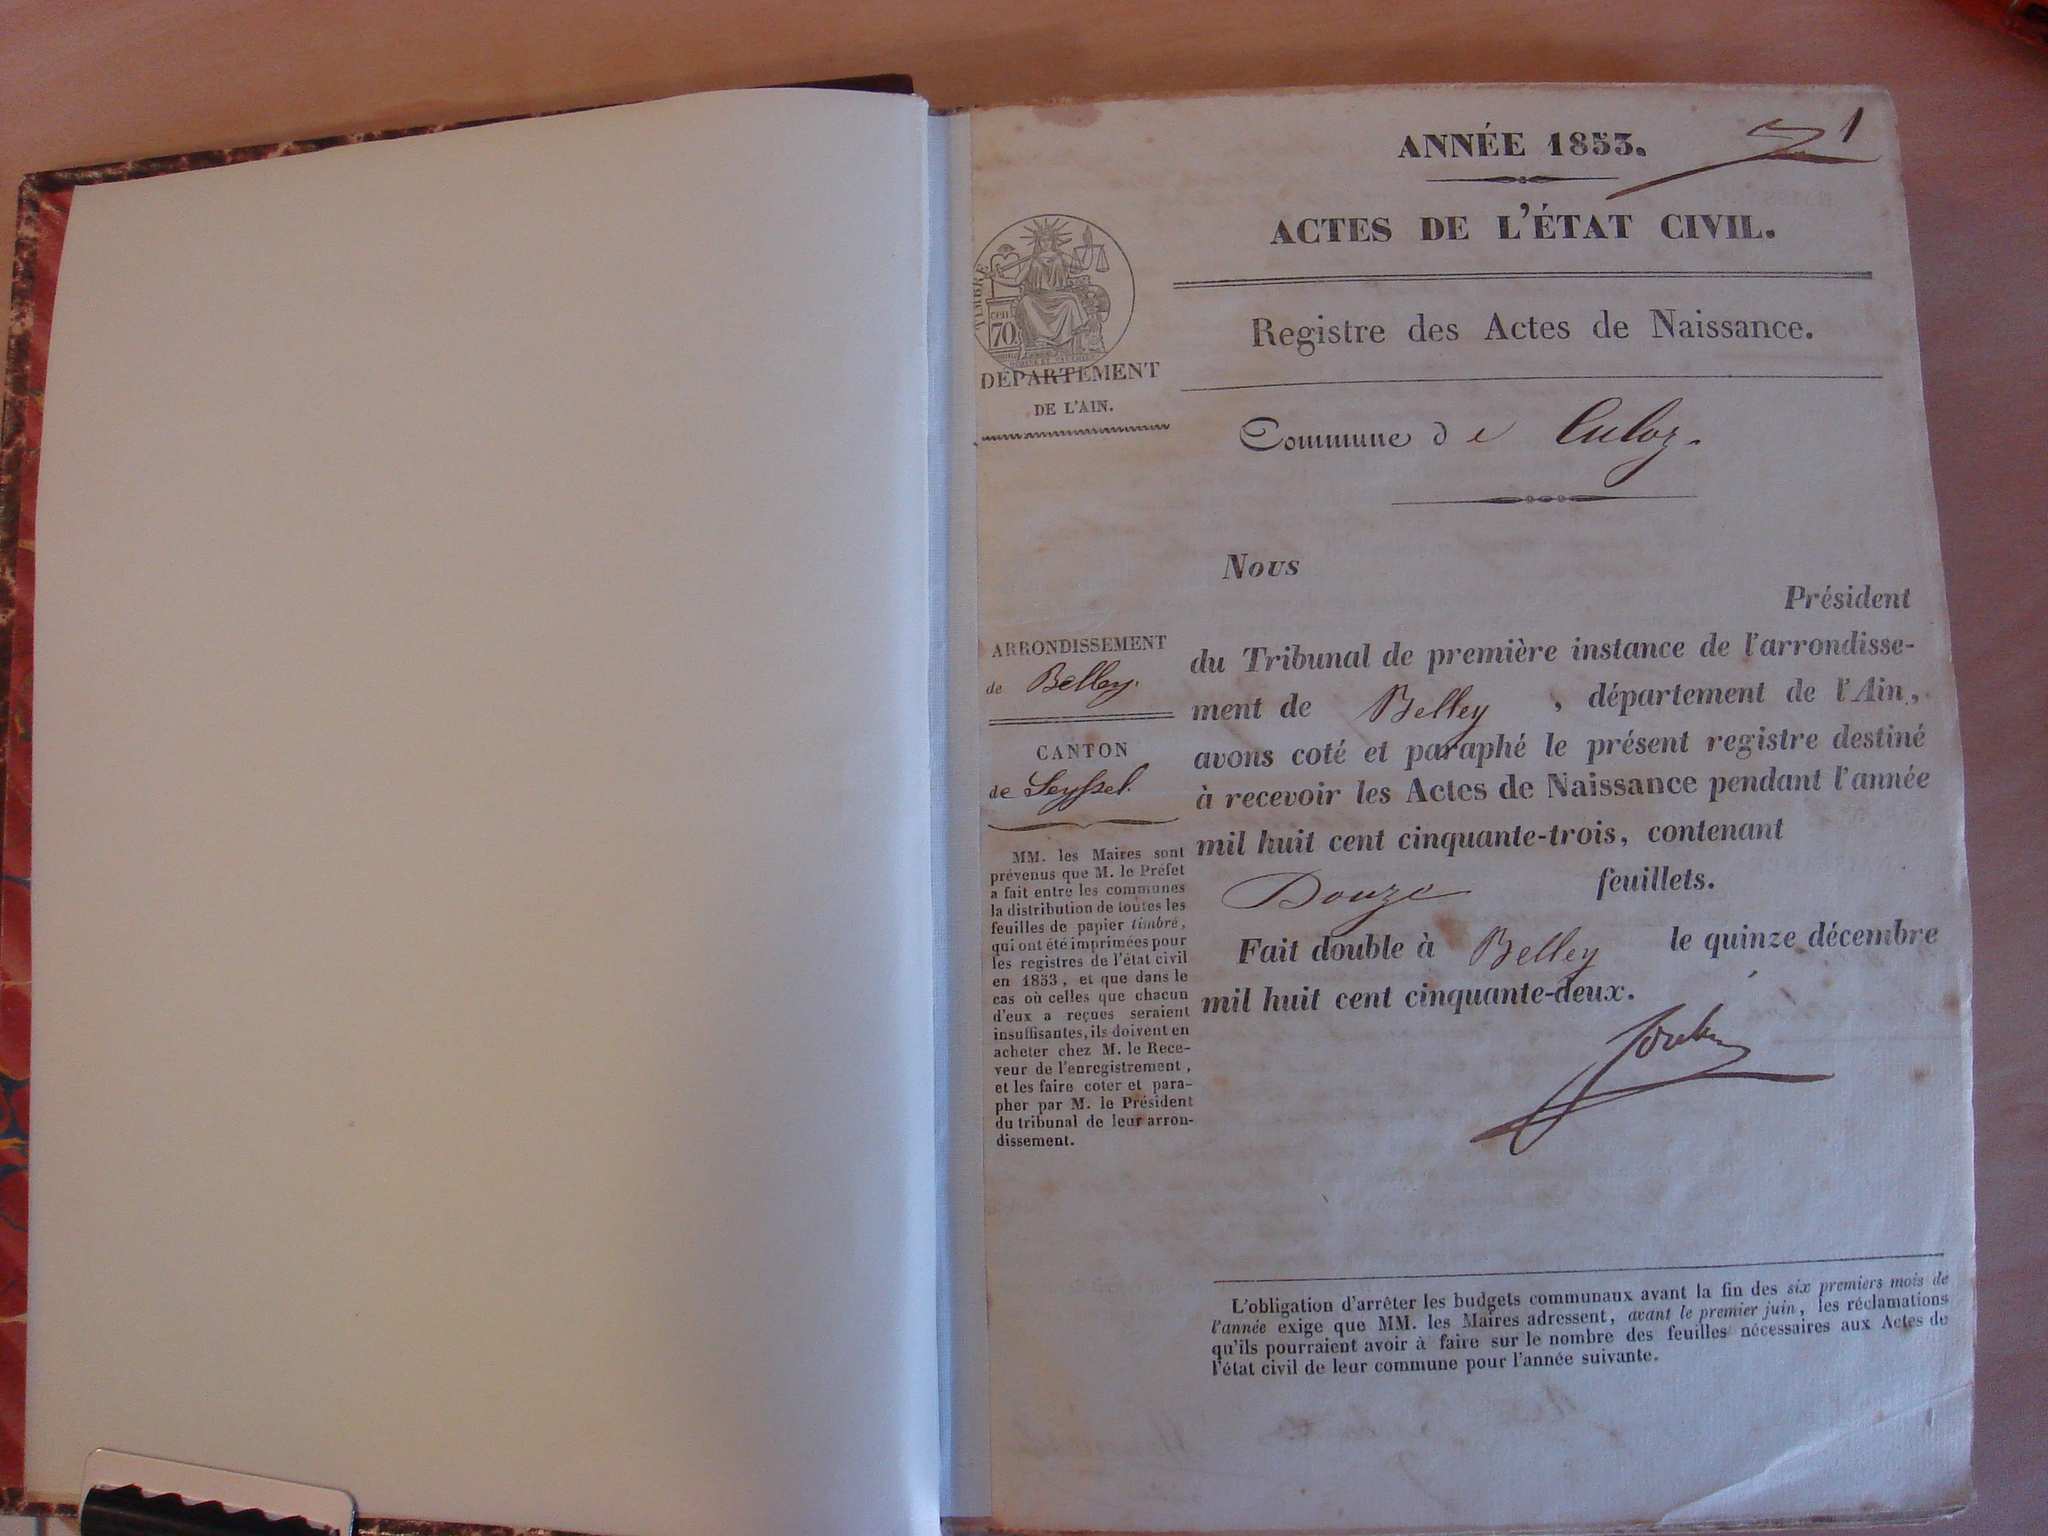 1
ANNÉE 1853.
ACTES DE L'ÉTAT CIVIL.
Registre des Actes de Naissance.
TIMBRE
cen
70
DÉPARTEMENT
DE L'AIN.
Commune de Culoz.
Nous
Président
du Tribunal de première instance de l'arrondisse-
ment de Belley, département de l'Ain,
avons coté et paraphé le présent registre destiné
à recevoir les Actes de Naissance pendant l'année
mil huit cent cinquante-trois, contenant
Douze feuillets.
Fait double à Belley le quinze décembre
mil huit cent cinquante-deux.
ARRONDISSEMENT
de Belley.
CANTON
de Seyssel.
MM. les Maires sont
prévenus que M. le Préfet
a fait entre les communes
la distribution de toutes les
feuilles de papier timbré,
qui ont été imprimées pour
les registres de l'état civil
en 1853, et que dans le
cas où celles que chacun
d'eux a reçues seraient
insuffisantes, ils doivent en
acheter chez M. le Rece-
veur de l'enregistrement,
et les faire coter et para-
pher par M. le Président
du tribunal de leur arron-
dissement.
L'obligation d'arrêter les budgets communaux avant la fin des six premiers mois de
l'année exige que MM. les Maires adressent, avant le premier juin, les réclamations
qu'ils pourraient avoir à faire sur le nombre des feuilles nécessaires aux Actes de
l'état civil de leur commune pour l'année suivante.